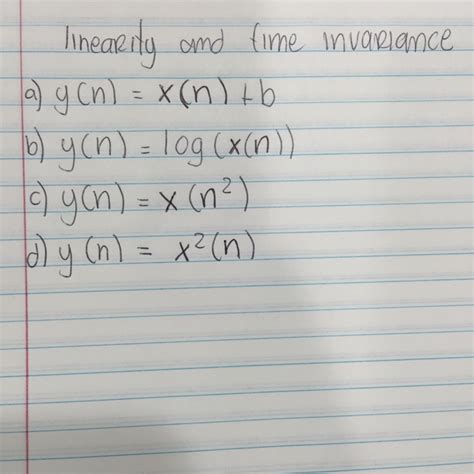 linearity and time invariance
a) y(n) = x(n) + b
b) y(n) = log(x(n))
c) y(n) = x(n²)
d) y(n) = x²(n)